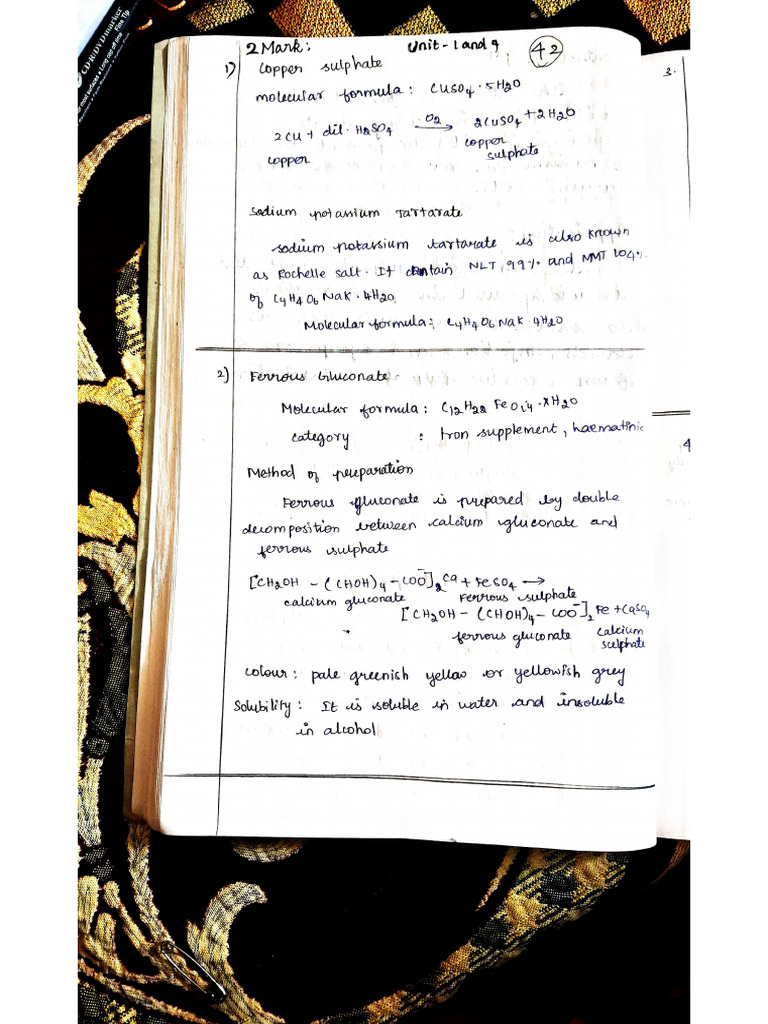 CD/DVD marker
Fine Tip
2 Mark: Unit - 1 and 4 42
1) Copper sulphate
molecular formula: CuSO4 · 5H2O
2Cu + dil. H2SO4 O2 → 2CuSO4 + 2H2O
copper copper sulphate
Sodium potassium Tartarate
sodium potassium tartarate is also known
as Rochelle salt. It contain NLT 99% and NMT 104%
of C4H4O6NaK · 4H2O
Molecular formula: C4H4O6NaK · 4H2O
2) Ferrous Gluconate
Molecular formula: C12H22FeO14 · xH2O
category : Iron supplement, haematinic
Method of preparation
Ferrous gluconate is prepared by double
decomposition between calcium gluconate and
ferrous sulphate
[CH2OH - (CHOH)4 - COO-]2 Ca + FeSO4 →
calcium gluconate Ferrous sulphate
[CH2OH - (CHOH)4 - COO-]2 Fe + CaSO4
ferrous gluconate calcium sulphate
Colour: pale greenish yellow or yellowish grey
Solubility: It is soluble in water and insoluble
in alcohol
3.
4